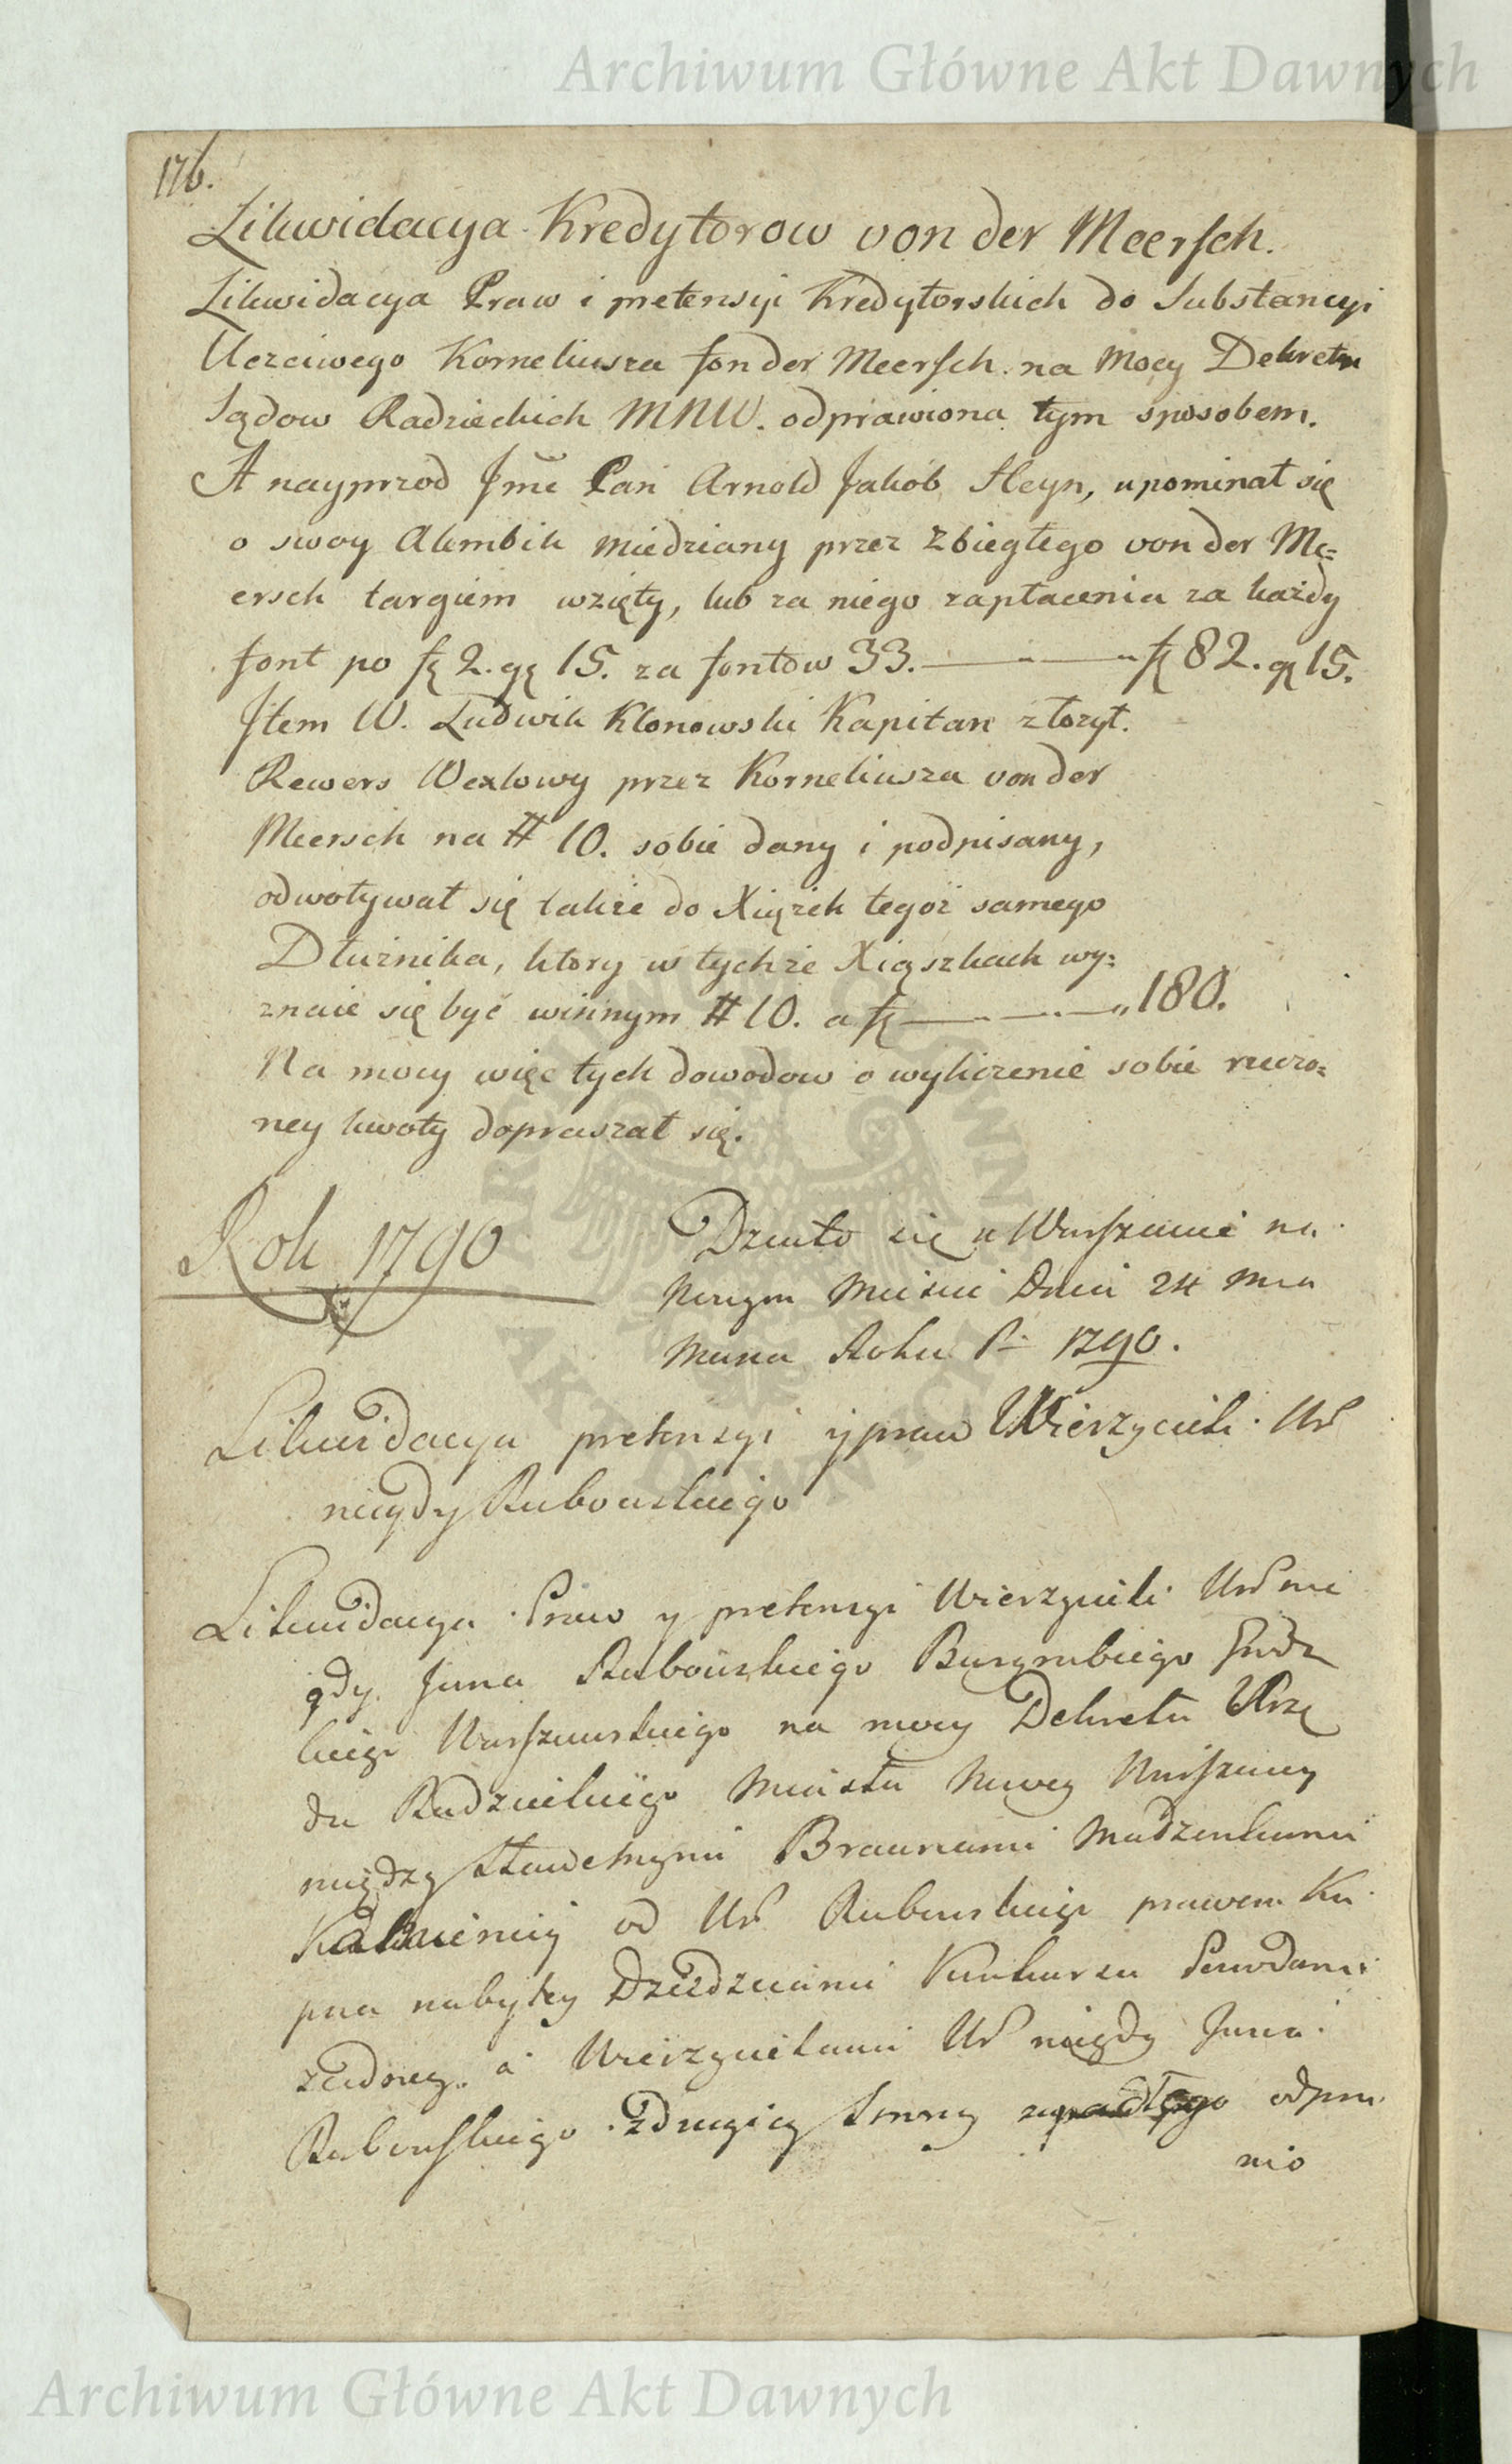 Archiwum Główne Akt Dawnych
176.
Likwidacya Kredytorow von der Meersch.
Likwidacya Praw i pretensyi Kredytorskich do Substancyi
Uczciwego Korneliusza fonder Meersch. na Mocy Dekretu
Sądow Radzieckich MNW. odprawiona tym sposobem.
A nayprzod Jmć Pan Arnold Jakób Heyn, upominał się
o swoy Alembik miedziany przez zbiegłego von der Me=
ersch targiem wzięty, lub za niego zapłacenia za każdy
font po fł 2. gr 15. za fontow 33. — fł 82. gr 15.
Item W. Ludwik Klonowski Kapitan złożył.
Rewers Wexlowy przez Korneliusza von der
Meersch na # 10. sobie dany i podpisany,
odwoływał się także do Xiążek tegoż samego
Dłużnika, ktory w tychże Xiąszkach wy=
znaie się być winnym # 10. a fł — „180.
Na mocy więc tych dowodow o wyliczenie sobie rzeczo=
ney kwoty dopraszał się.
Rok 1790
Działo się w Warszawie na
Nowym Mieście Dnia 24 Mca
Marca Roku P 1790.
Likwidacya pretensyi y praw Wierzycieli Ur
niegdy Rubowskiego
Likwidacya Praw y pretensyi Wierzycieli Ur nie
gdy Jana Rubowskiego Burgrabiego Grodz
kiego Warszawskiego na mocy Dekretu Urzę
du Radzieckiego Miasta Nowey Warszawy
między Sławetnymi Braunami Małżonkami
Kamienicy od Ur Rubowskiego prawem Ku
pna nabytey Dziedzicami Konkursu Powodami
z iedney a Wierzycielami Ur niegdy Jana
Rubowskiego z drugiey strony zapadłego odpra
nio
Archiwum Główne Akt Dawnych